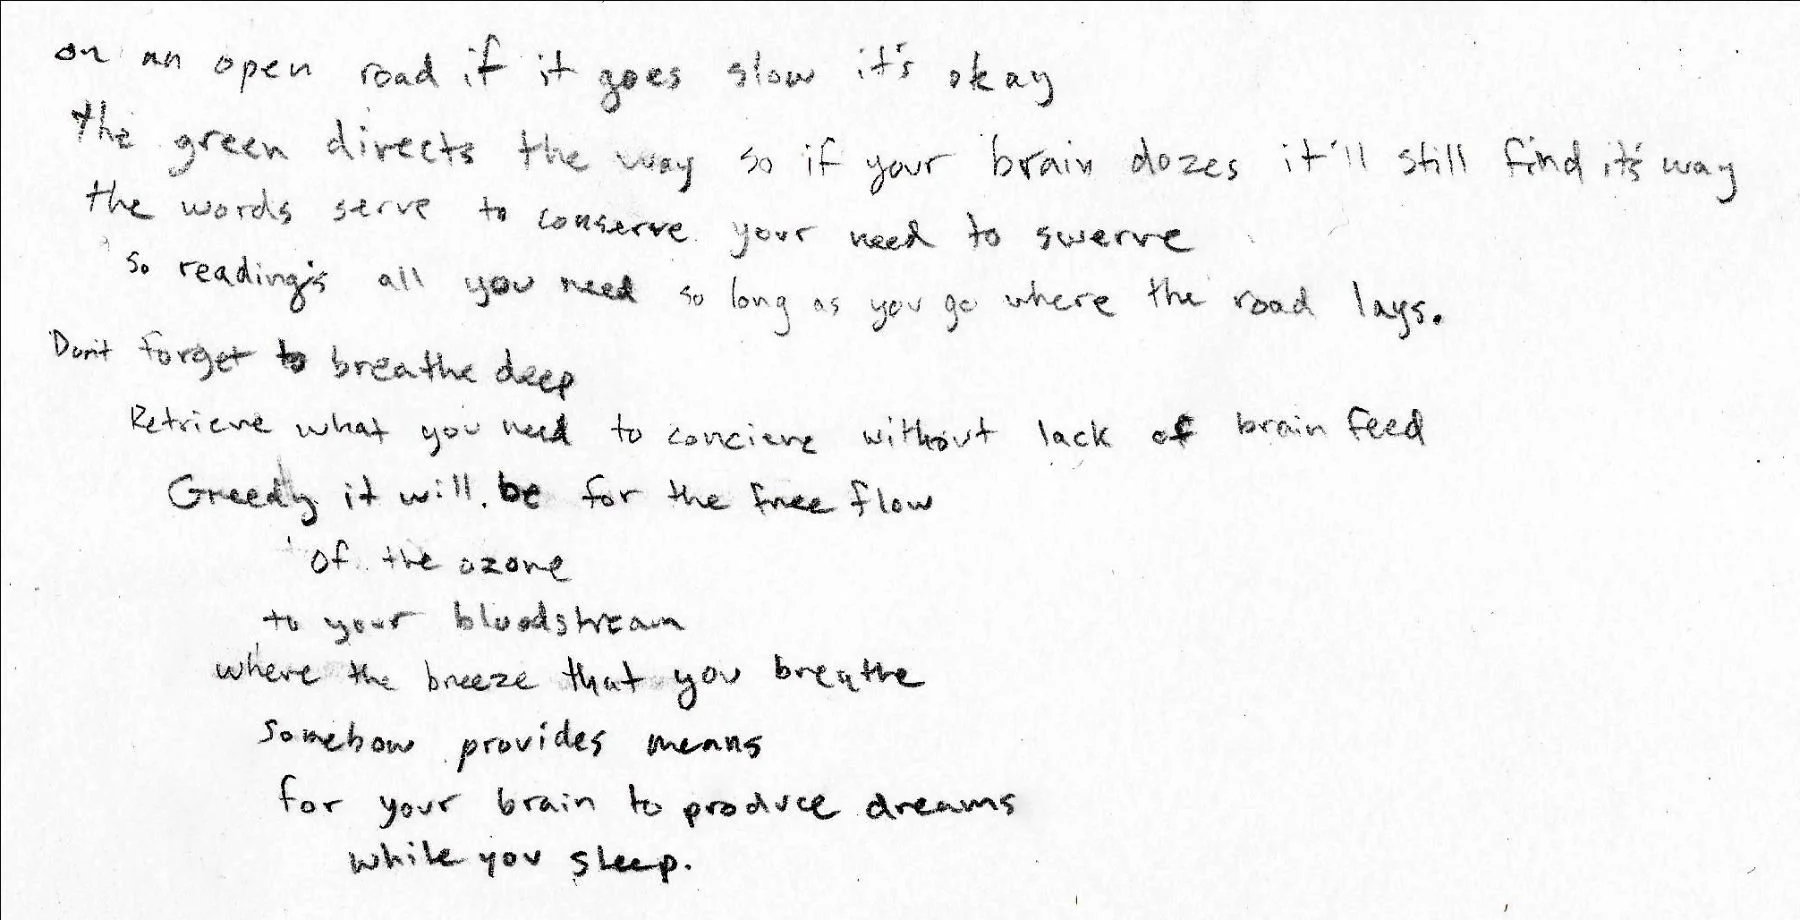 on an open road if it goes slow it's okay
the green directs the way so if your brain dozes it'll still find it's way
the words serve to conserve your need to swerve
so reading's all you need so long as you go where the road lays.
Don't forget to breathe deep
Retrieve what you need to concieve without lack of brain feed
Greedy it will be for the free flow
of the ozone
to your bloodstream
where the breeze that you breathe
somehow provides means
for your brain to produce dreams
while you sleep.